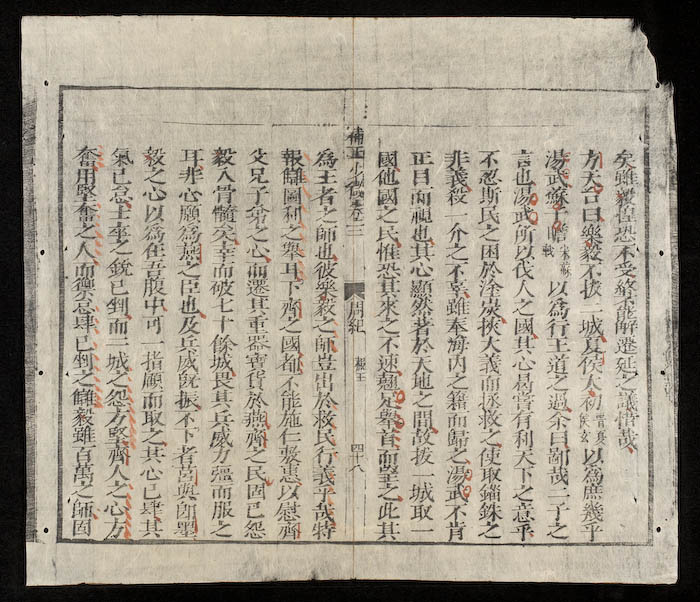 矣雖毅惶恐不受終不能解遷延之議惜哉
方天台曰樂毅不拔二城夏侯太初 晉夏侯玄 以為庶幾乎
湯武蘇子瞻 宋蘇軾 以為行王道之過余曰鄙哉二子之
言也湯武所以伐人之國其心曷嘗有利天下之意乎
不忍斯民之困於塗炭挾大義而拯救之使取錙銖之
非義殺一介之不辜雖奉海內之籍而歸之湯武不肯
正目而視也其心顯然著於天地之間故拔一城取一
國他國之民惟恐其來之不速翹足舉首而望之此其
補正少微卷三
周紀 赧王
四十八
為王者之師也彼樂毅之師豈出於救民行義乎哉特
報讎圖利之舉耳下齊之國都不能施仁敷惠以慰齊
父兄子弟之心而遷其重器寶貨於燕齊之民固已怨
毅入骨髓矣幸而破七十餘城畏其兵威力彊而服之
耳非心願為燕之臣也及兵威既振不下者莒與即墨
毅之心以為在吾腹中可一指顧而取之其心已肆其
氣已怠士卒之銳已挫而二城之怨方堅齊人之心方
奮用堅奮之人而禦怠肆已挫之讎毅雖百萬之師固